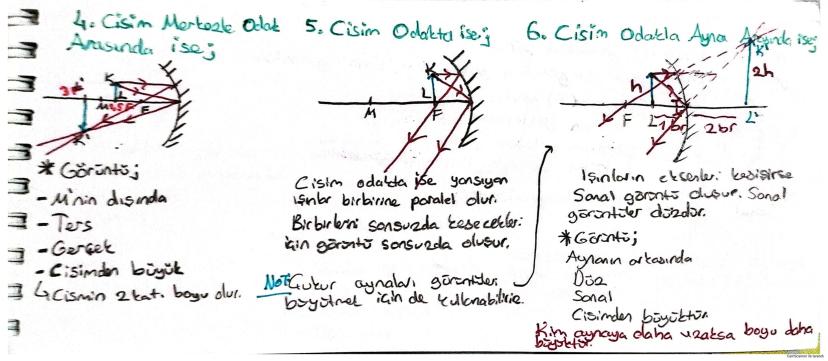 4. Cisim Merkezle Odak
Arasında ise;
K
L
M
F
K'
* Görüntü;
- M'nin dışında
- Ters
- Gerçek
- Cisimden büyük
↳ Cismin 2 katı boyu olur.
5. Cisim Odakta ise;
K
L
M
F
Cisim odakta ise yansıyan
ışınlar birbirine paralel olur.
Birbirlerini sonsuzda kesecekleri
için görüntü sonsuzda oluşur.
Not: Çukur aynaları görüntüleri
büyütmek için de kullanabiliriz.
6. Cisim Odakla Ayna Arasında ise;
K'
2h
h
F
L
1br
2br
L'
Işınların eksenleri kesişirse
Sanal görüntü oluşur. Sanal
görüntüler düzdür.
* Görüntü;
Aynanın arkasında
Düz
Sanal
Cisimden büyüktür.
Kim aynaya daha uzaksa boyu daha
büyüktür.